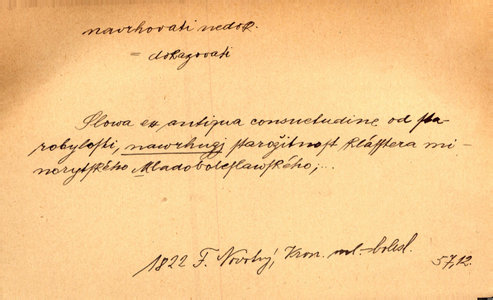 navrhovati nedok.
= dokazovati
Slowa ex antiqua consuetudine od sta-
robylosti, nawrhugj starožitnost klásstera mi-
norytského Mladoboleslawského;...
1822 F. Novotný, Kron. ml.-bolesl. 57,12.